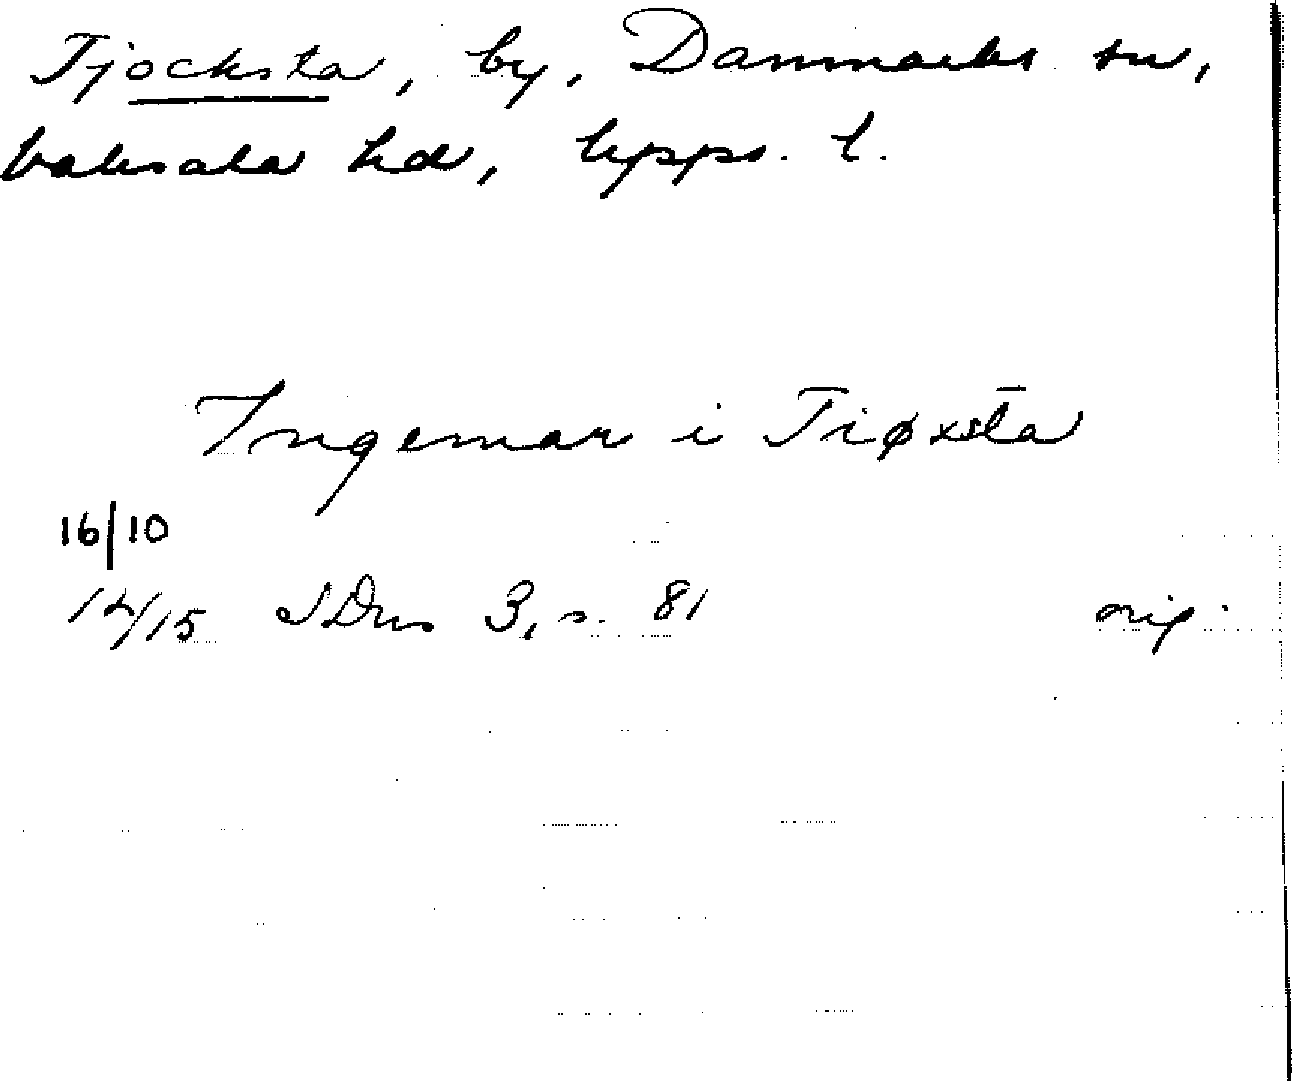 Tjocksta, by, Danmarks sn,
Vaksala hd, Upps. l.
Ingemar i Tiøxsta
16/10
14/15 SDns 3, s. 81 orig.